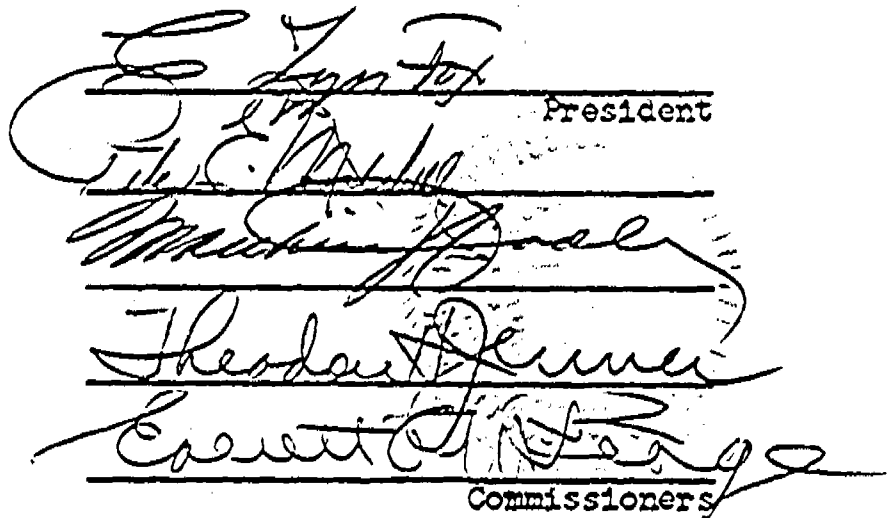 E. Lyn Fox
President
Peter E. Mitchell
Theodore Jenner
Everett C. McKeage
Commissioners